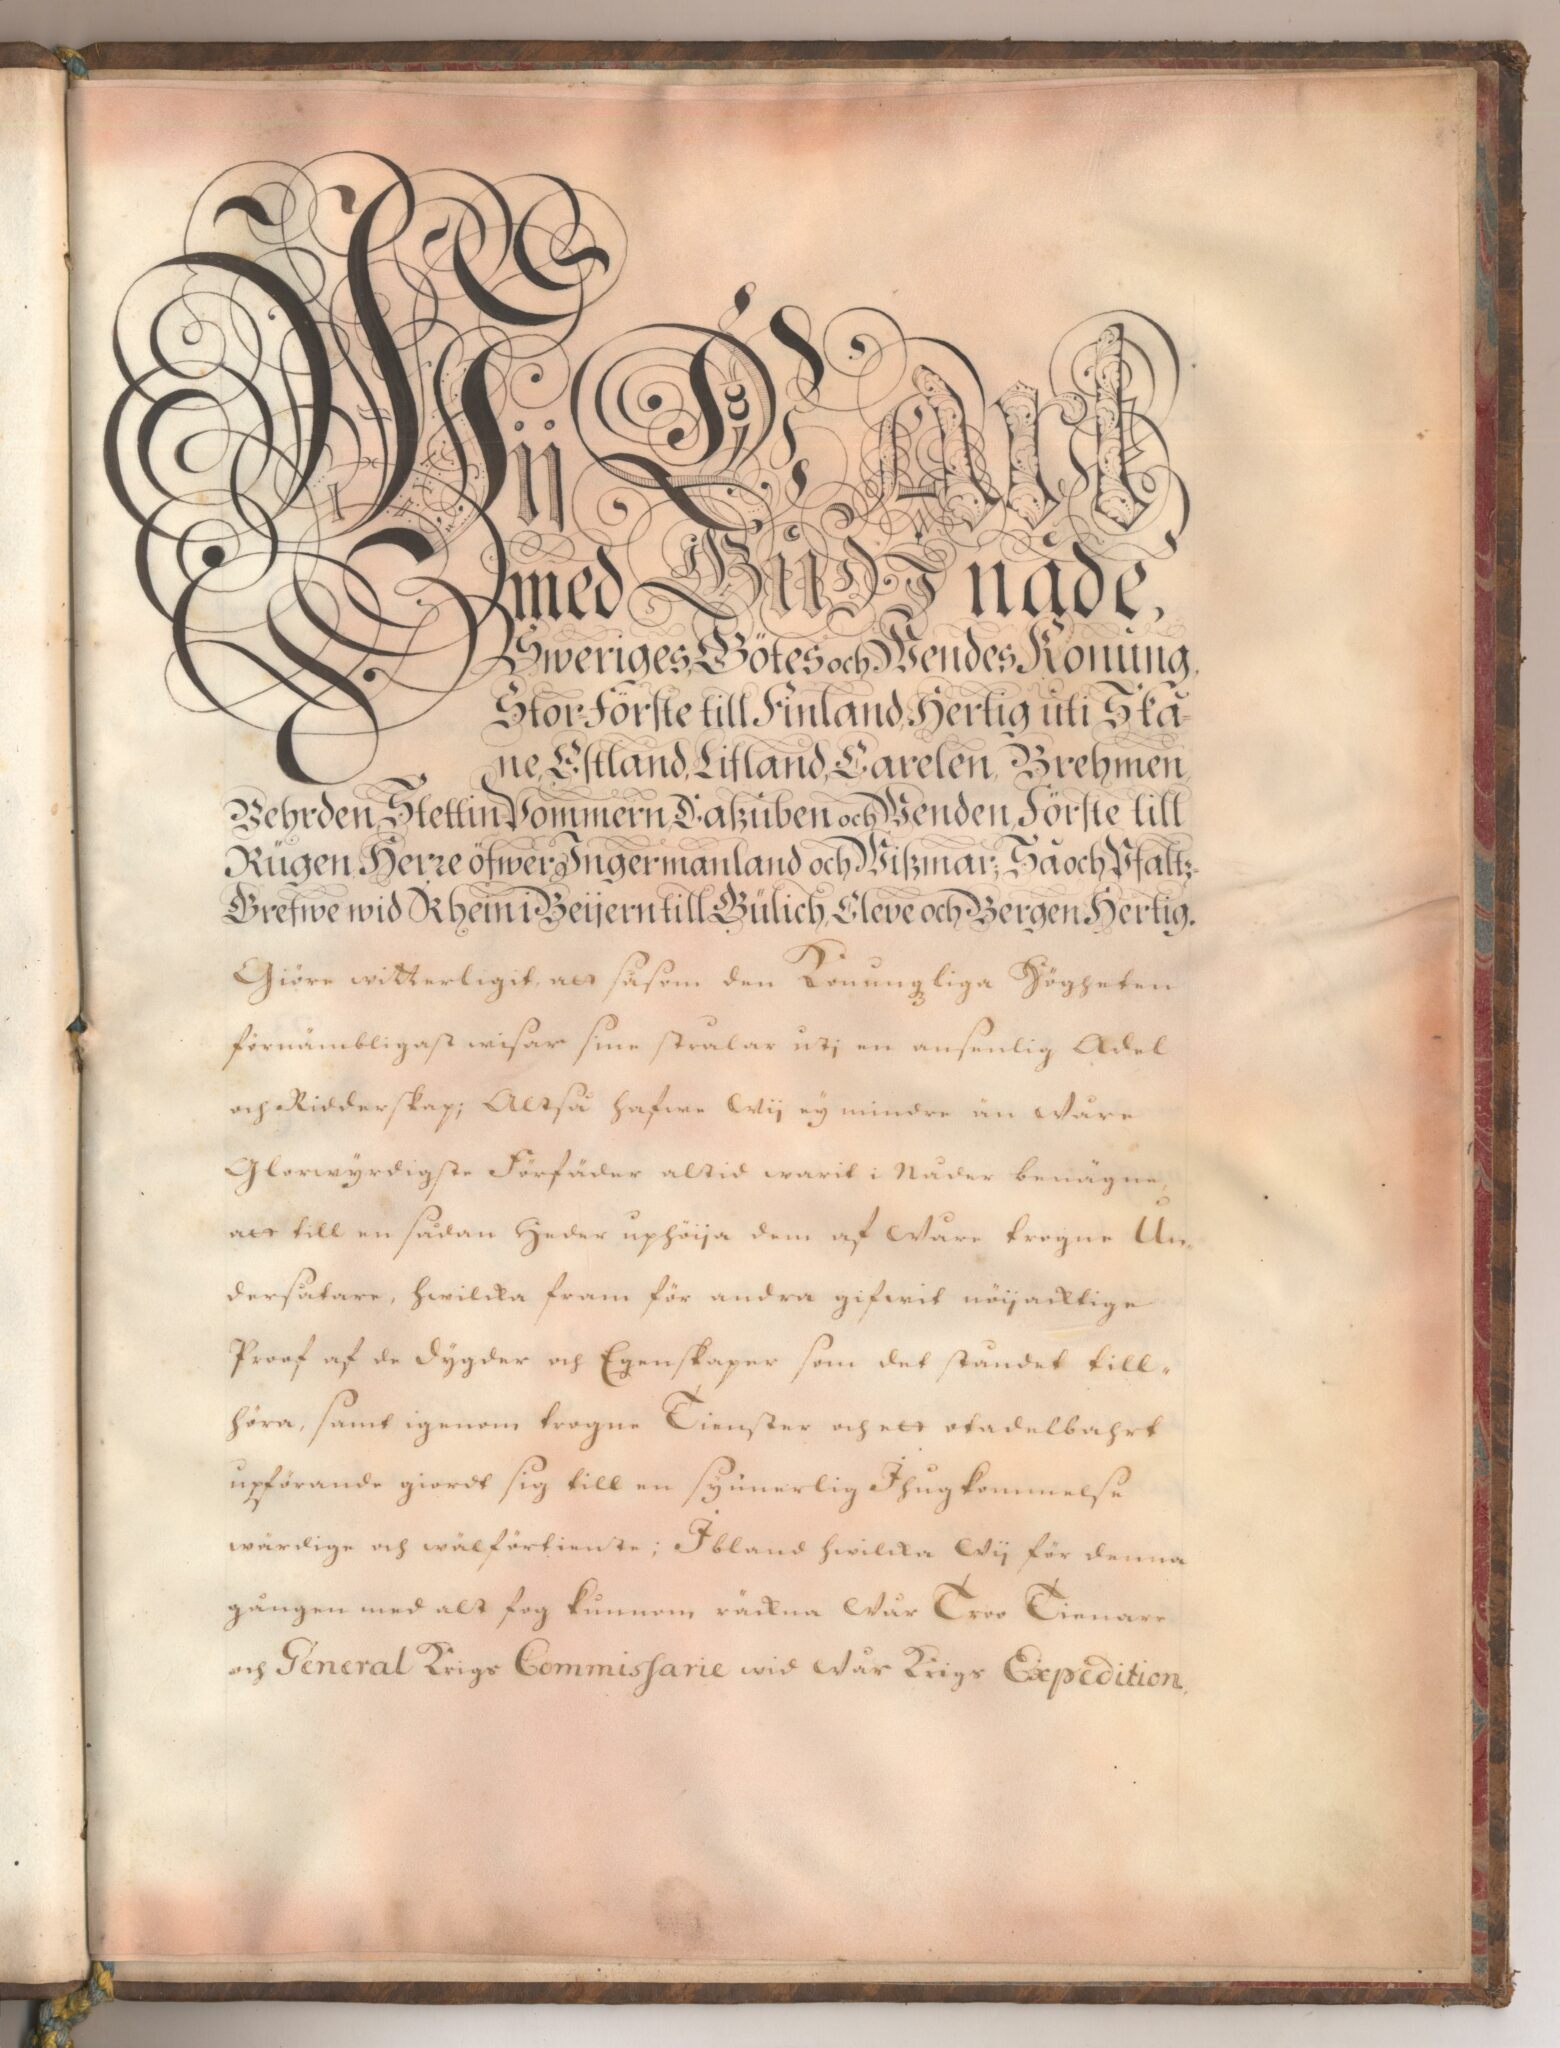 Wii Carl
med Gudz nåde,
Sweriges, Götes och Wendes Konung,
Stor-Förste till Finland, Hertig uti Skå-
ne, Estland, Lifland, Carelen, Brehmen,
Vehrden, Stettin Pommern, Caßuben och Wenden, Förste till
Rügen, Herre öfwer Ingermanland och Wißmar; Så och Pfaltz-
Grefwe wid Rhein i Beijern till Gülich, Cleve och Bergen Hertig.
Giöre witterligit, att såsom den Konungliga Högheten
förnämbligast wisar sine strålar utj en ansenlig Adel
och Ridderskap; Altså hafwe Wij ey mindre än Wåre
Glorwyrdigste Förfäder altid warit i Nåder benägne,
att till en sådan Heder uphöija dem af Wåre trogne Un-
dersåtare, hwilcka fram för andra gifwit nöijacktige
Proof af de Dygder och Egenskaper som det ståndet till-
höra, samt igenom trogne Tienster och ett otadelbahrt
upförande giordt sig till en synnerlig Ihugkommelse
wärdige och wälförtiente; Ibland hwilcka Wij för denna
gången med alt fog kunnom räckna Wår Troo Tienare
och General Krigs Commissarie wid Wår Krigs Expedition,